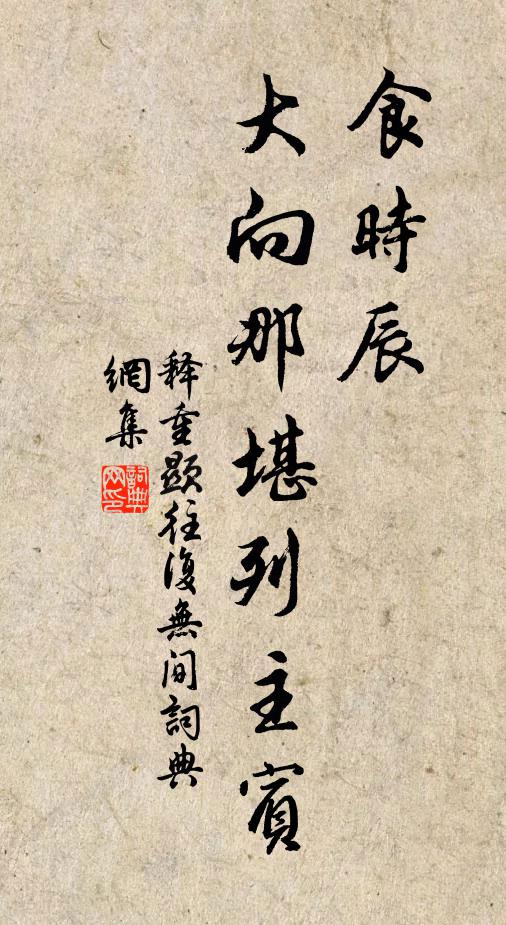 食時辰
大向那堪列主賓
释重顯往復無间詞典
網集
詞典网印